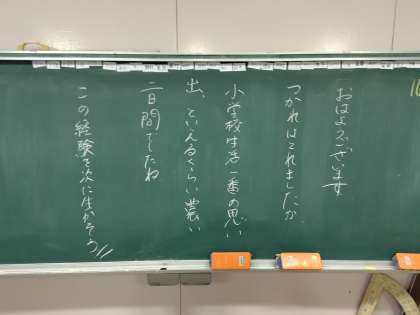 おはようございます
つかれはとれましたか
小学校生活一番の思い
出、といえるくらい濃い
二日間でしたね
この経験を次に生かそう